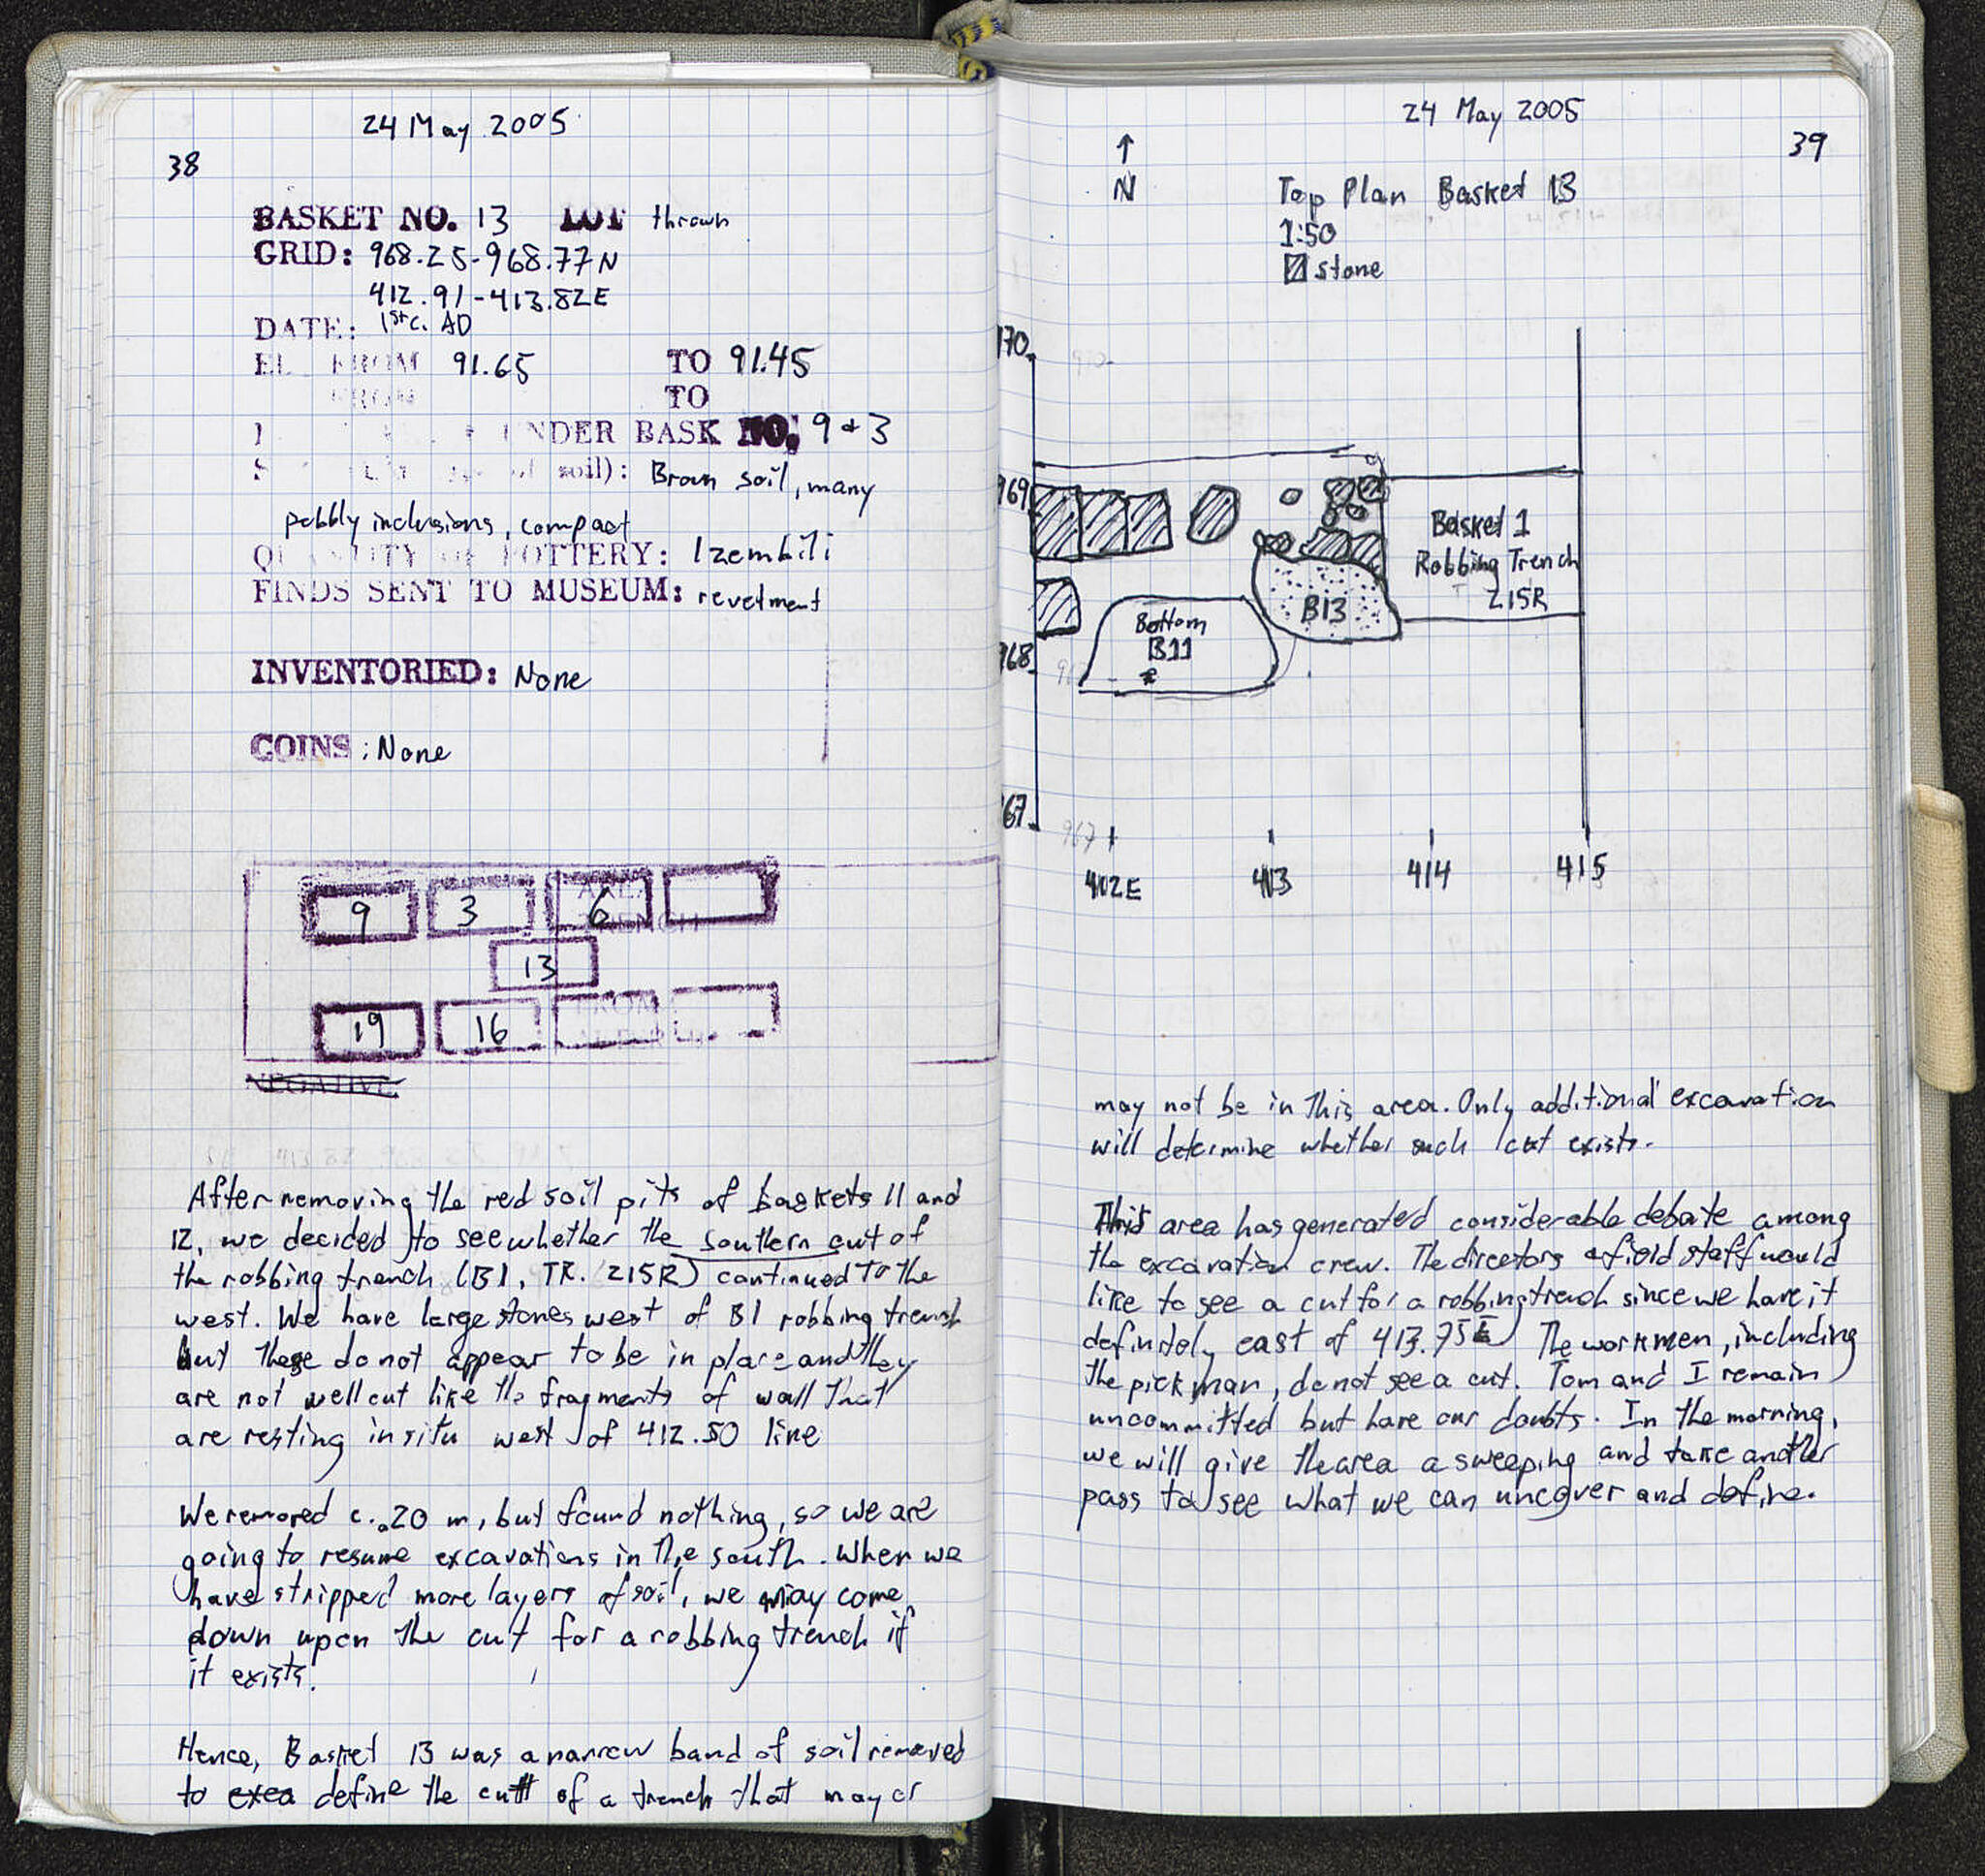 24 May 2005
38
BASKET NO. 13 LOT thrown
GRID: 968.25-968.77N
412.91-413.82E
DATE: 1st c. AD
EL FROM 91.65 TO 91.45
FROM TO
UNDER BASK NO. 9 + 3
soil): Brown soil, many
pebbly inclusions, compact
QUANTITY OF POTTERY: 1 zembili
FINDS SENT TO MUSEUM: revetment
INVENTORIED: None
COINS: None
9 3 6
13
19 16
NEGATIVE
After removing the red soil pits of baskets 11 and
12, we decided to see whether the southern cut of
the robbing trench (B1, TR. 215R) continued to the
west. We have large stones west of B1 robbing trench
but these do not appear to be in place and they
are not well cut like the fragments of wall that
are resting in situ west of 412.50 line
We removed c. .20 m, but found nothing, so we are
going to resume excavations in the south. When we
have stripped more layers of soil, we may come
down upon the cut for a robbing trench if
it exists.
Hence, Basket 13 was a narrow band of soil removed
to exca define the cut of a trench that may or
24 May 2005
39
N
Top Plan Basket 13
1:50
stone
970
969
968
967
Basket 1
Robbing Trench
215R
B13
Bottom
B11
412E 413 414 415
may not be in this area. Only additional excavation
will determine whether such cut exists.
This area has generated considerable debate among
the excavation crew. The directors & field staff would
like to see a cut for a robbing trench since we have it
definitely east of 413.75E. The workmen, including
the pickman, do not see a cut. Tom and I remain
uncommitted but have our doubts. In the morning,
we will give the area a sweeping and take another
pass to see what we can uncover and define.